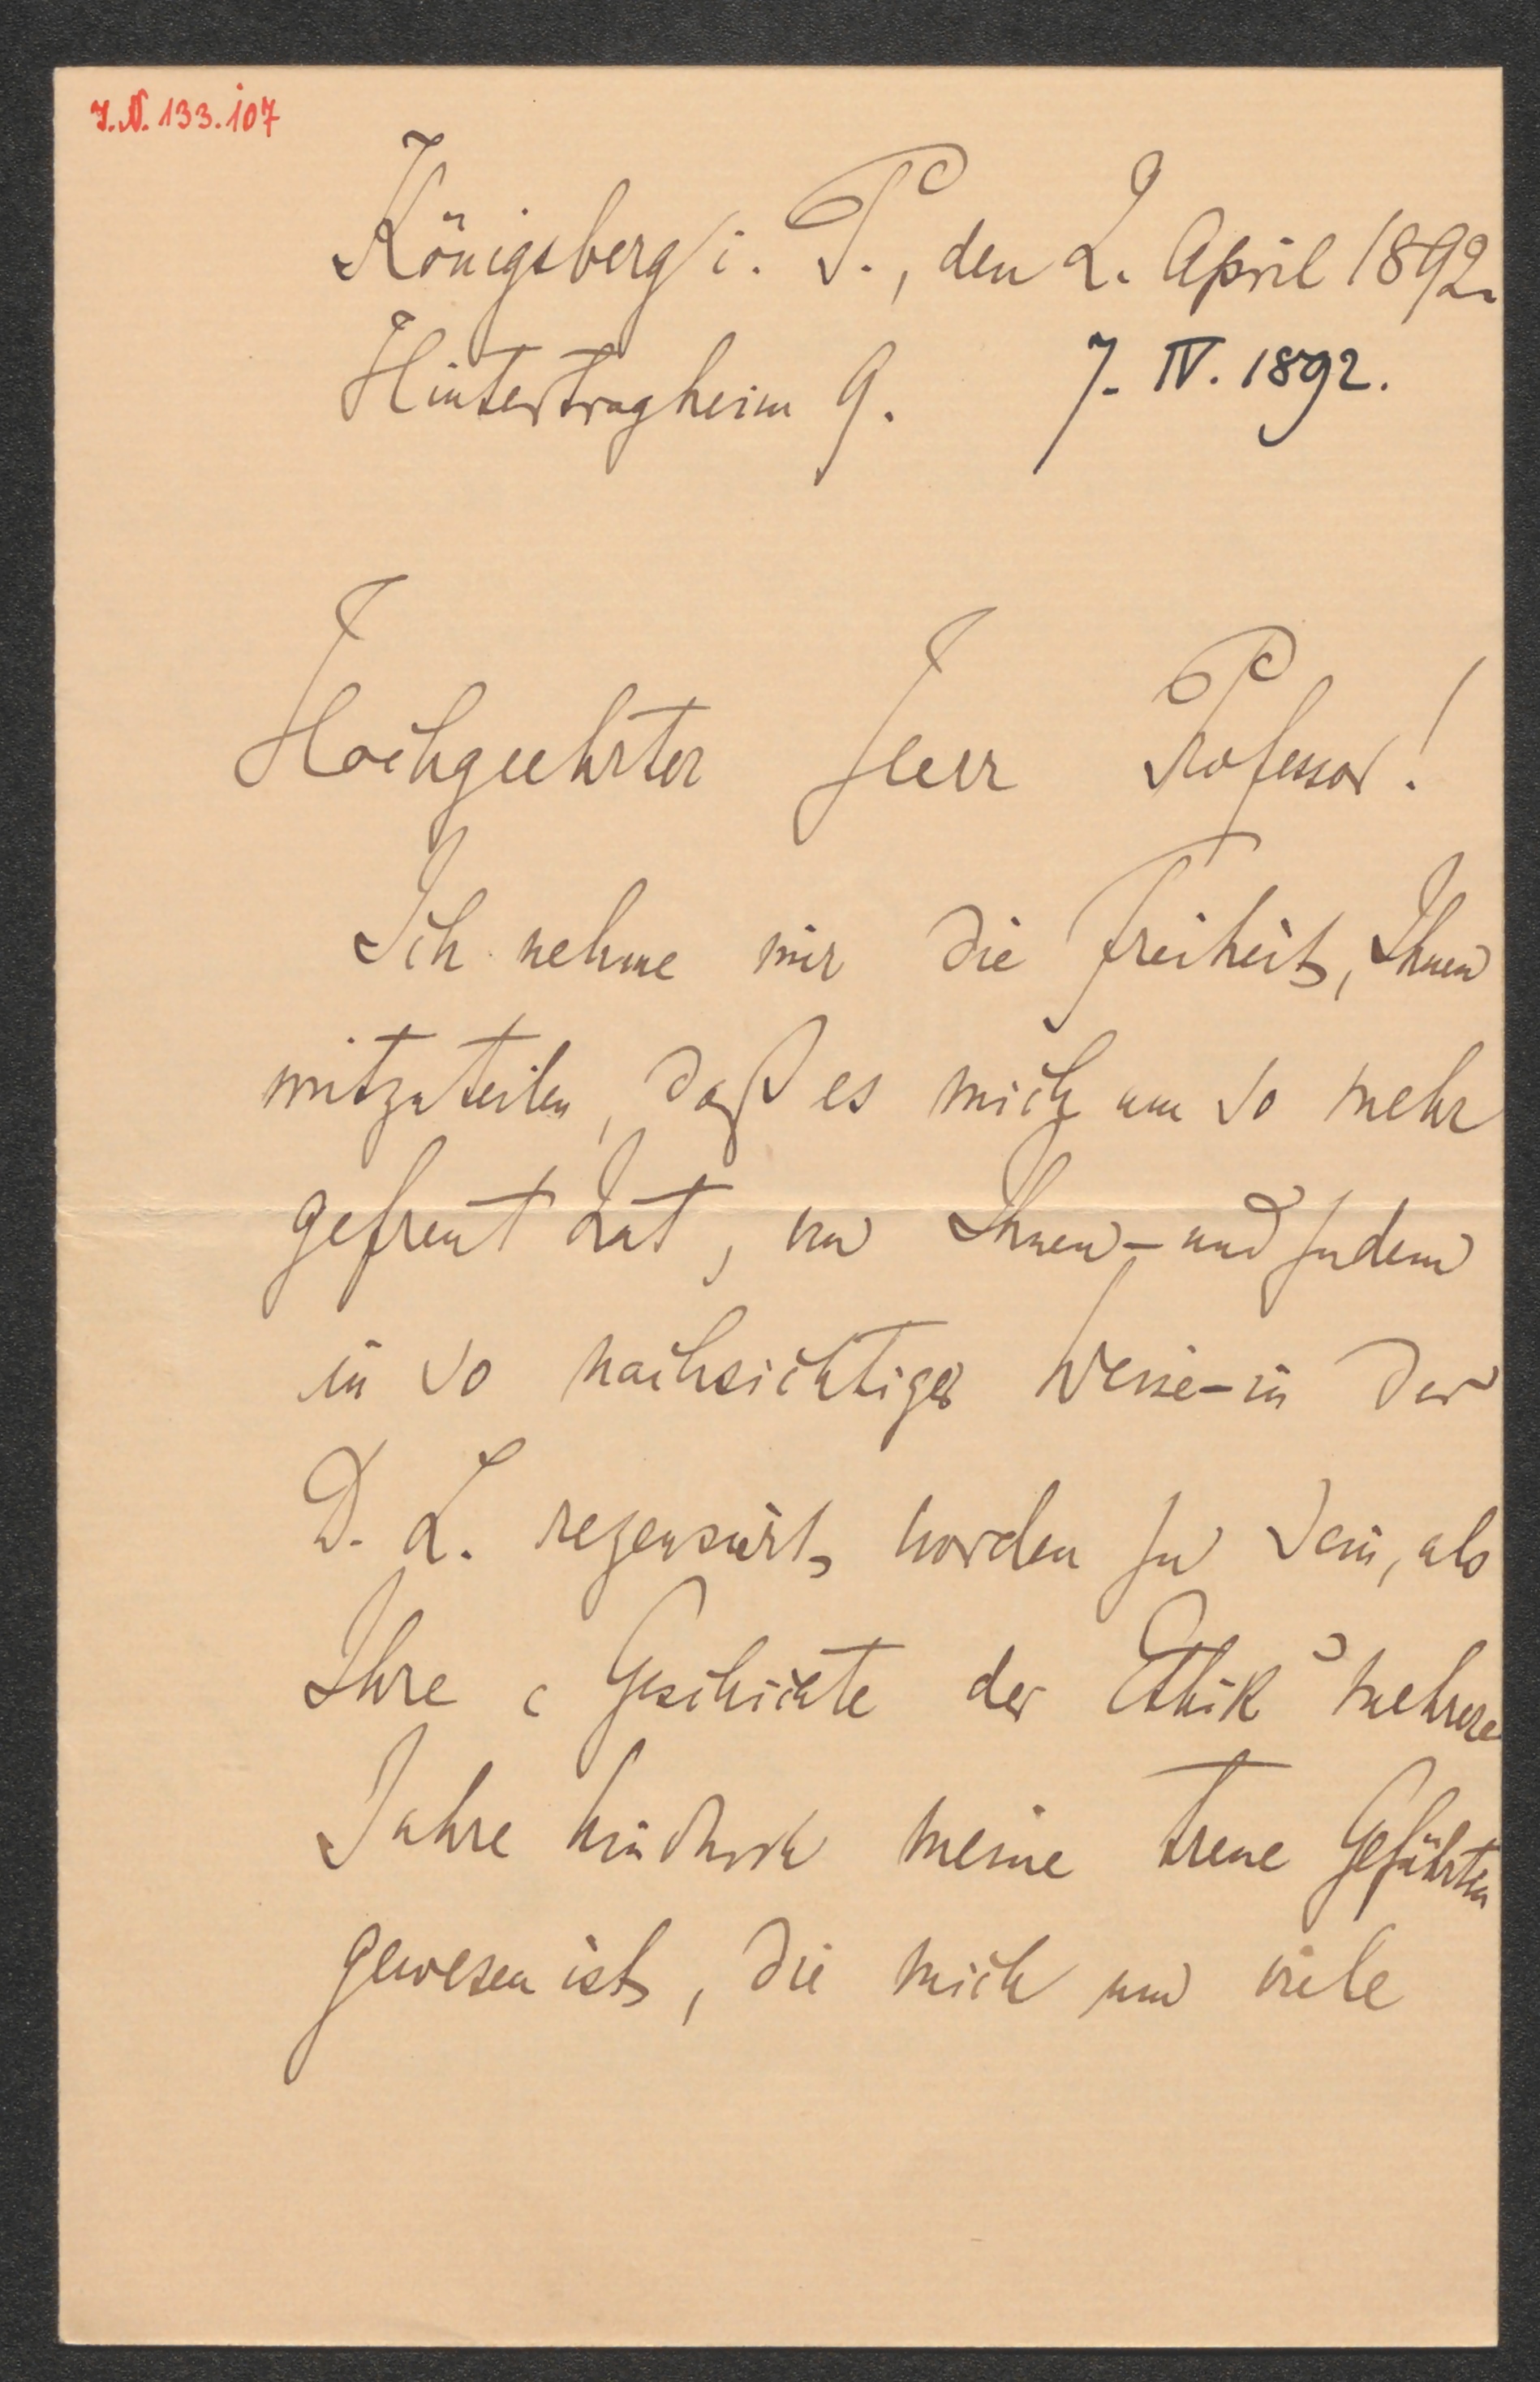 J.N. 133.107
Königsberg i. P., den 2. April 1892.
Hintertragheim 9.
7. IV. 1892.
Hochgeehrter Herr Professor!
Ich nehme mir die Freiheit, Ihnen
mitzuteilen, daß es mich um so mehr
gefreut hat, von Ihnen – und zudem
in so nachsichtiger Weise – in der
D. L. rezensirt worden zu sein, als
Ihre „Geschichte der Ethik“ mehrere
Jahre hindurch meine treue Gefährtin
gewesen ist, die mich um viele